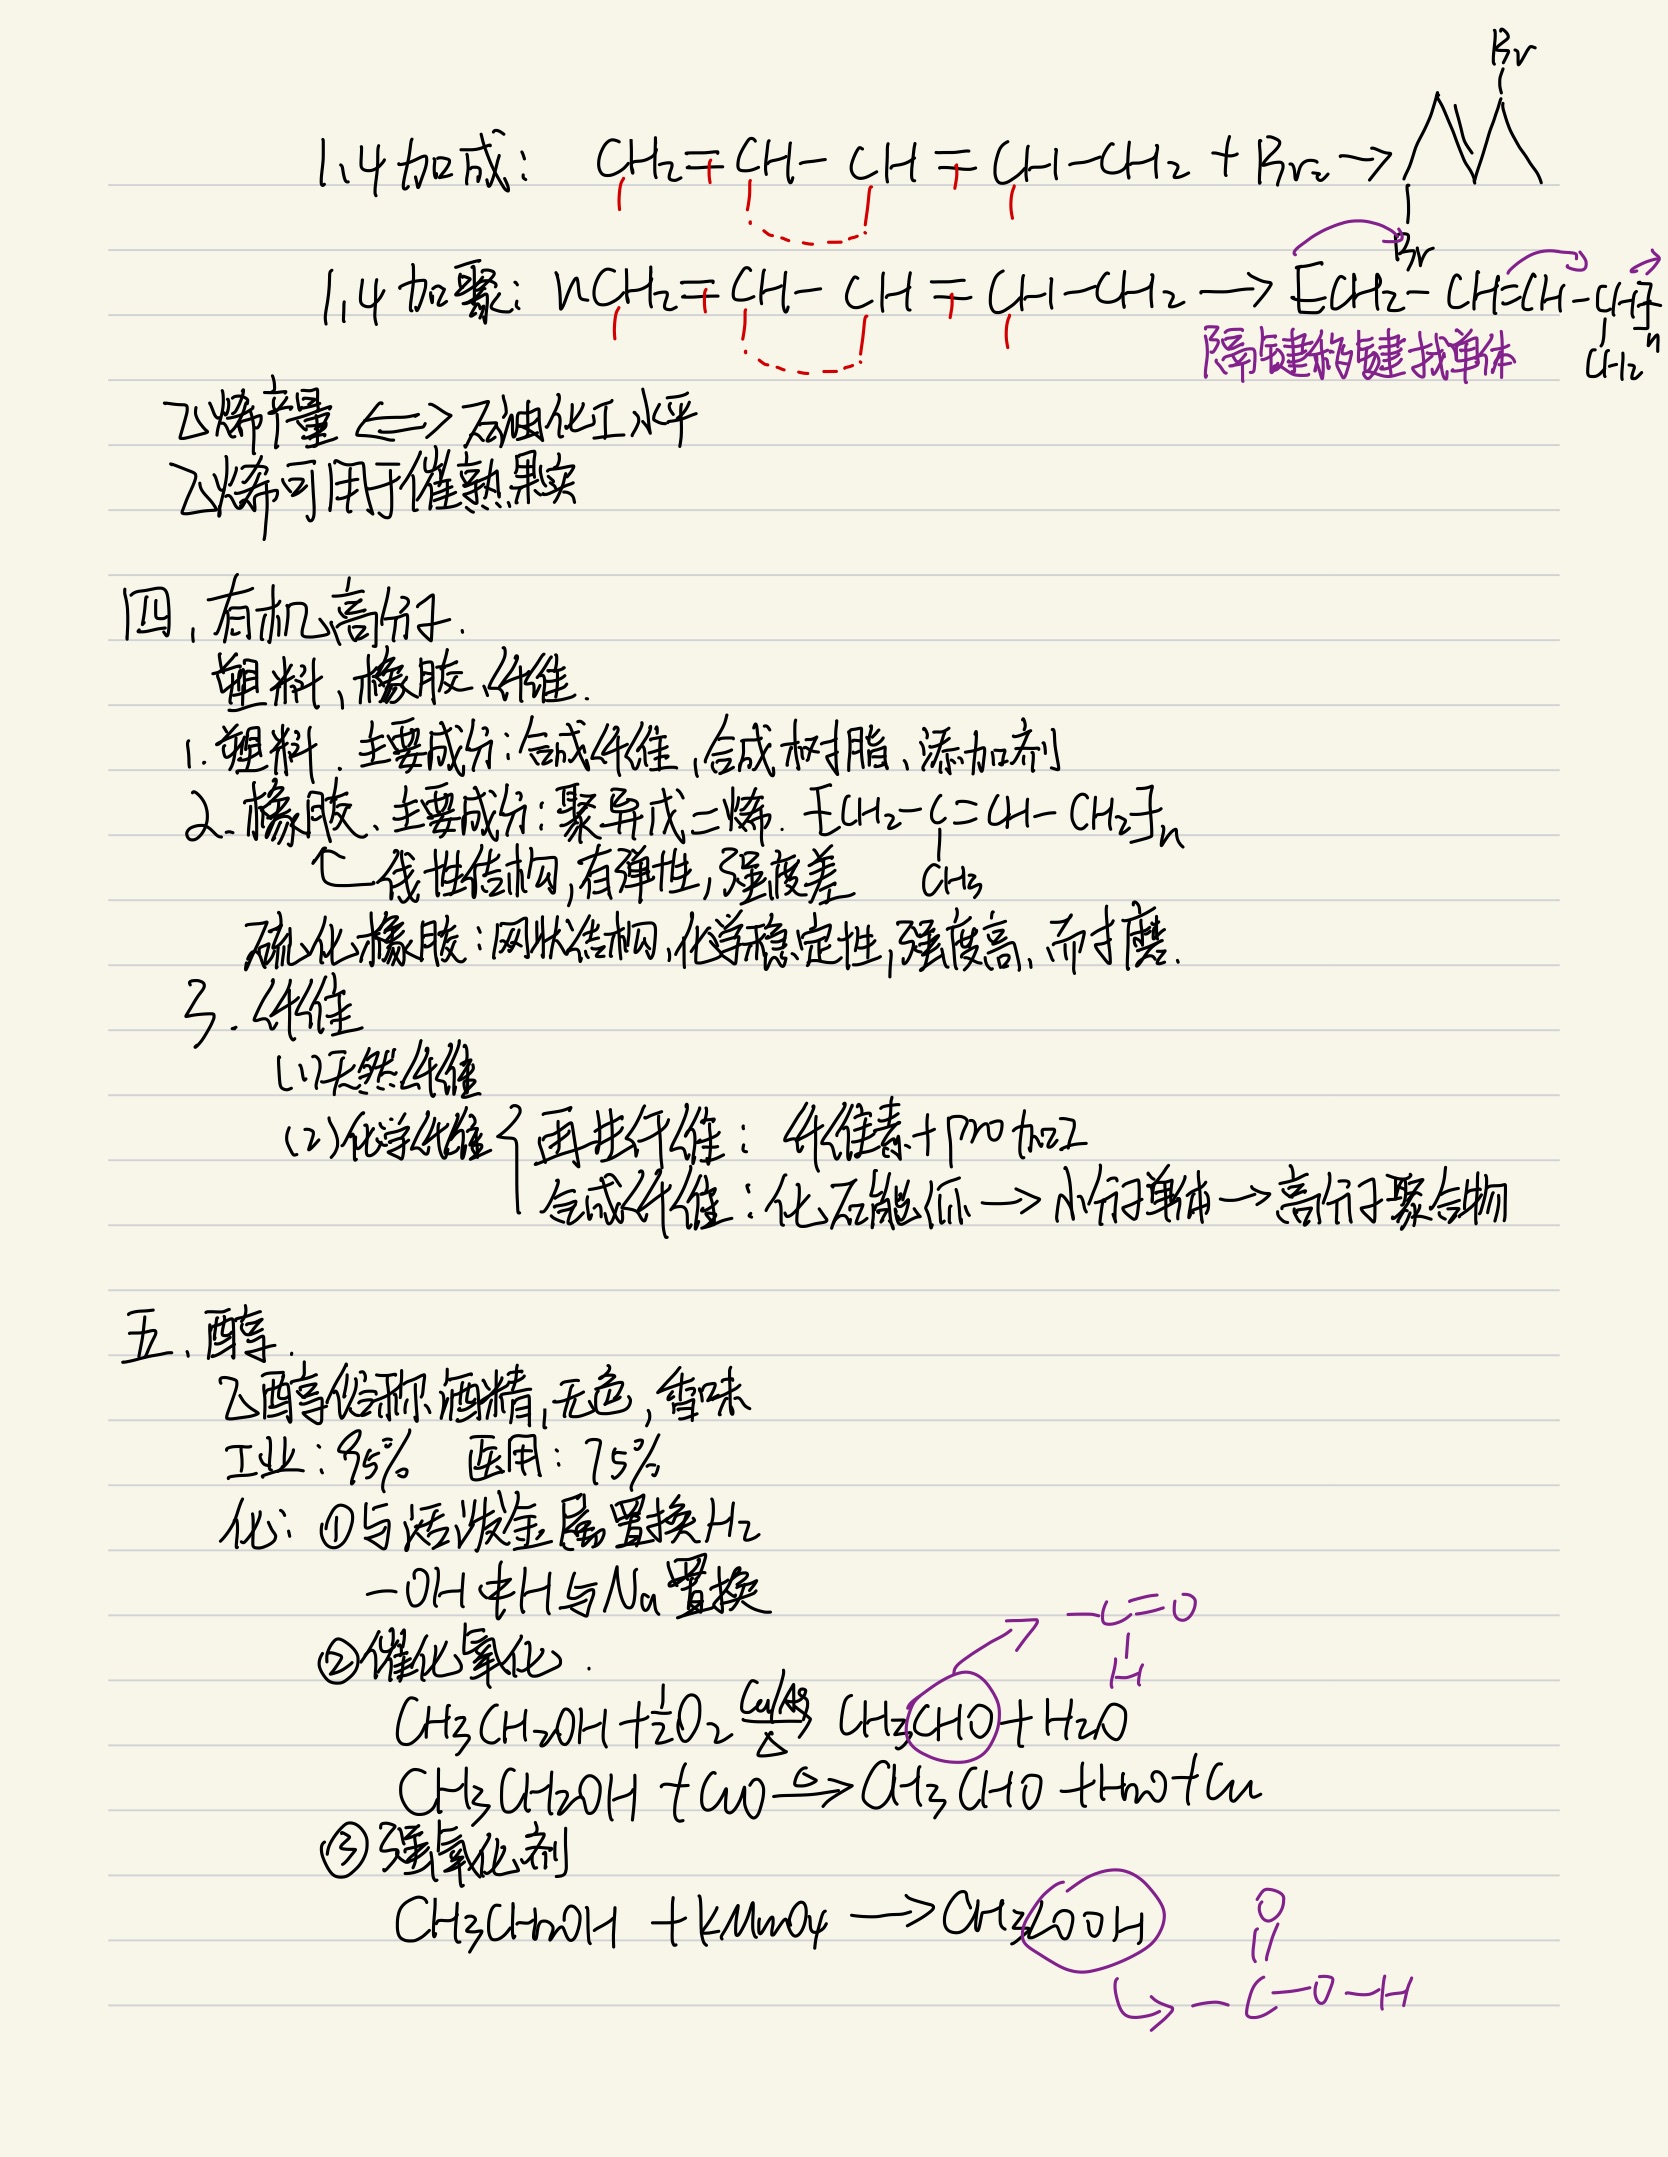 Br
1,4加成: CH₂=CH-CH=CH-CH₂+Br₂→
Br
1,4加聚: nCH₂=CH-CH=CH-CH₂→[CH₂-CH=CH-CH]n
CH₂
隔键移键找单体
乙烯产量⟺石油化工水平
乙烯可用于催熟果实
四、有机高分子.
塑料、橡胶、纤维.
1.塑料.主要成分:合成纤维,合成树脂、添加剂
2.橡胶、主要成分:聚异戊二烯.[CH₂-C=CH-CH₂]n
CH₃
线性结构,有弹性,强度差
硫化橡胶:网状结构,化学稳定性,强度高、耐磨.
3.纤维
(1)天然纤维
(2)化学纤维{再生纤维: 纤维素+pro加工
合成纤维:化石能源→小分子单体→高分子聚合物
五、醇.
乙醇俗称酒精,无色,香味
工业:95% 医用:75%
化:①与活泼金属置换H₂
-OH中H与Na置换
-C=O
H
②催化氧化.
CH₃CH₂OH+½O₂ Cu/Ag→△ CH₃CHO+H₂O
CH₃CH₂OH+CuO△→CH₃CHO+H₂O+Cu
③强氧化剂
CH₃CH₂OH+KMnO₄→CH₃COOH
O
||
→-C-O-H